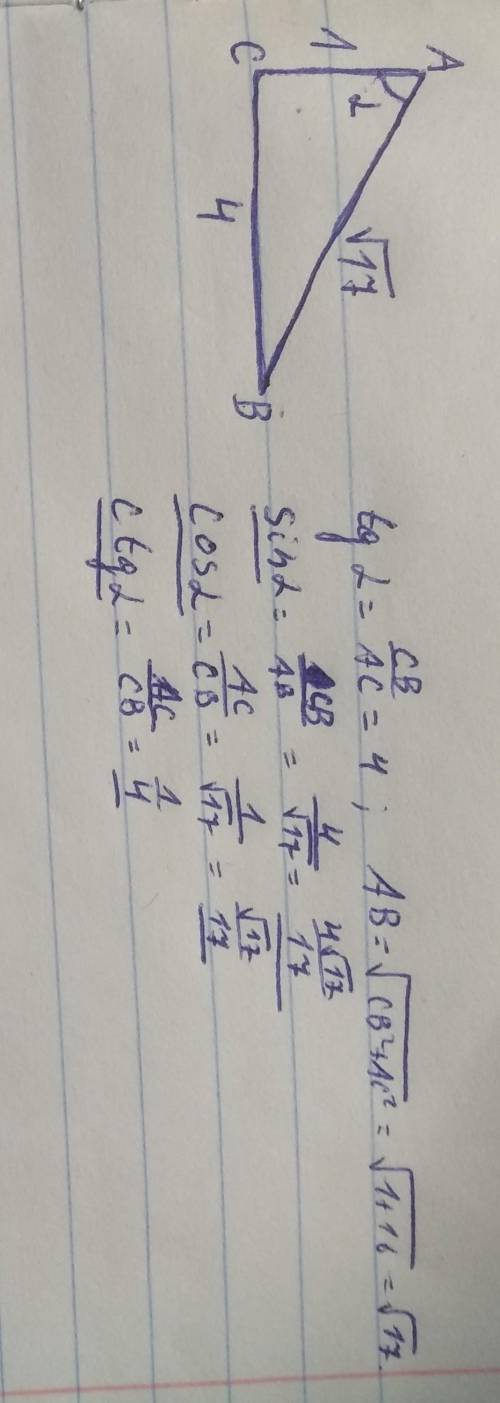 A
1
C
2
√17
4
B
tg α = CB/AC = 4 ; AB = √(CB²+AC²) = √(1+16) = √17.
Sin α = CB/AB = 4/√17 = 4√17/17
Cos α = AC/CB = 1/√17 = √17/17
Ctg α = AC/CB = 1/4